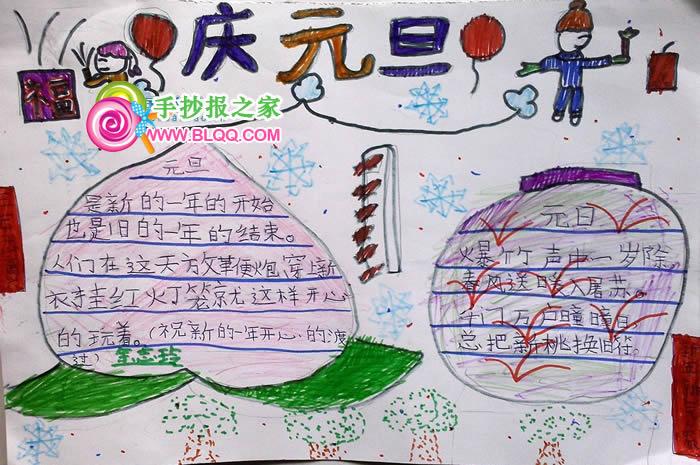 庆元旦
福
手抄报之家
WWW.BLQQ.COM
元旦
是新的一年的开始
也是旧的一年的结束。
人们在这天方文革便炮,穿上新
衣挂红火丁笼京尤这样开心
的玩着。(祝新的一年开心的渡
过)
元日
爆竹声中一岁除,
春风送暖入屠苏。
千门万户曈曈日
总把新桃换旧符。